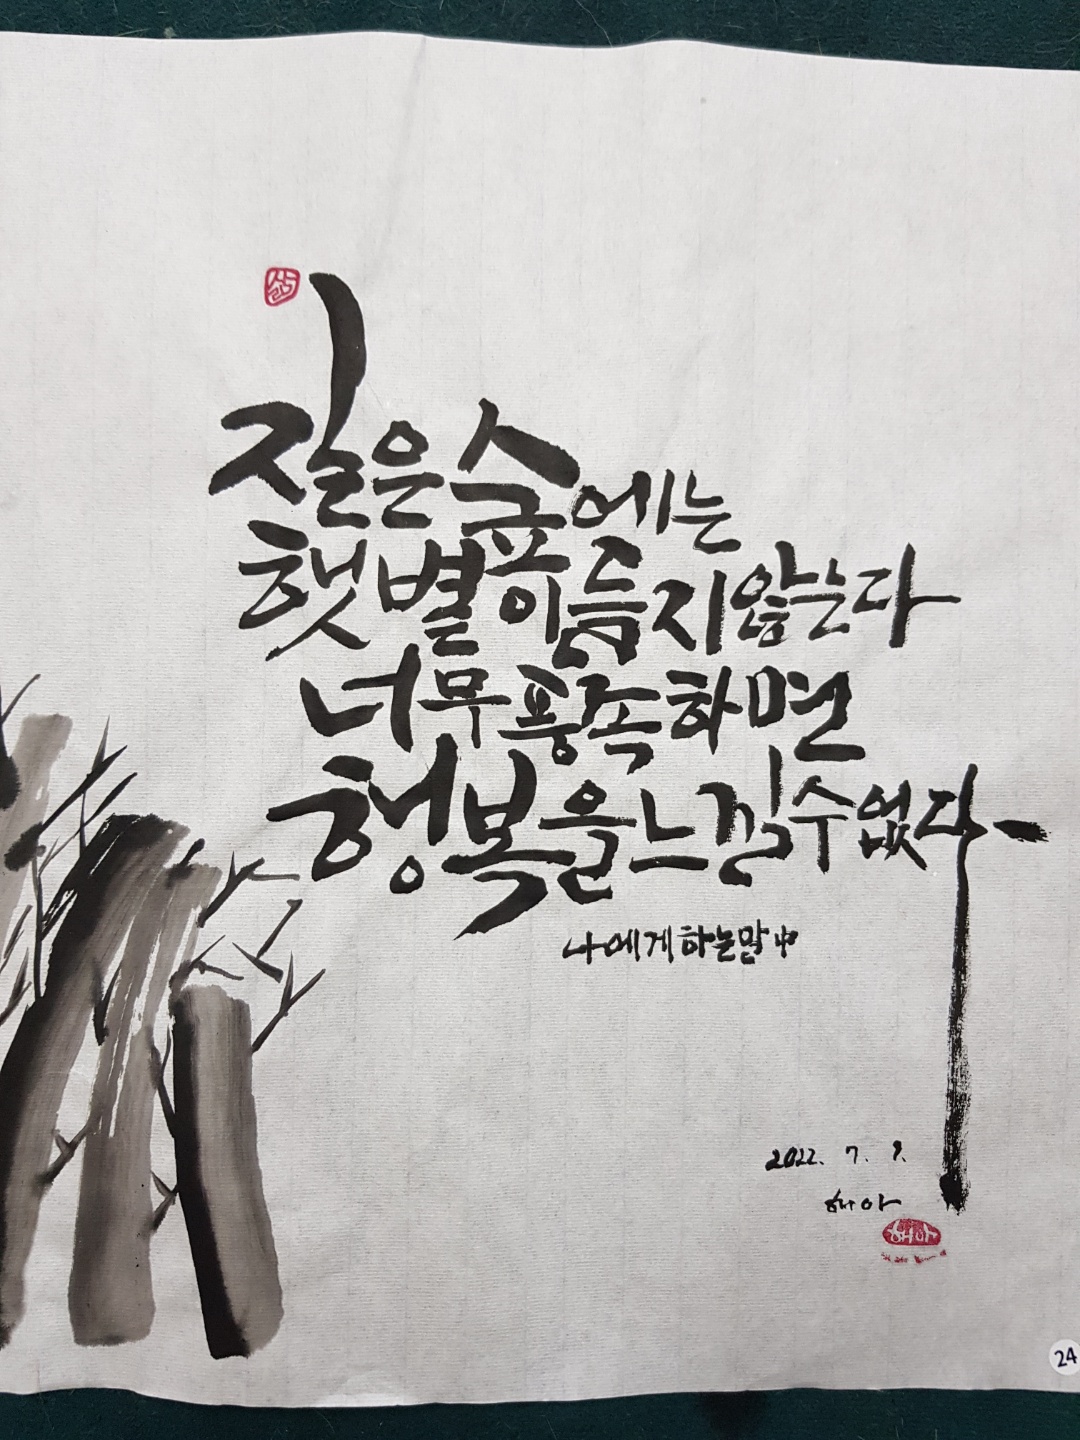 짙은 숲에는
햇볕이 듬지 않는다
너무 풍족하면
행복을 느낄 수 없다
나에게 하는 말 中
2022. 7. 9.
해아
해아
24